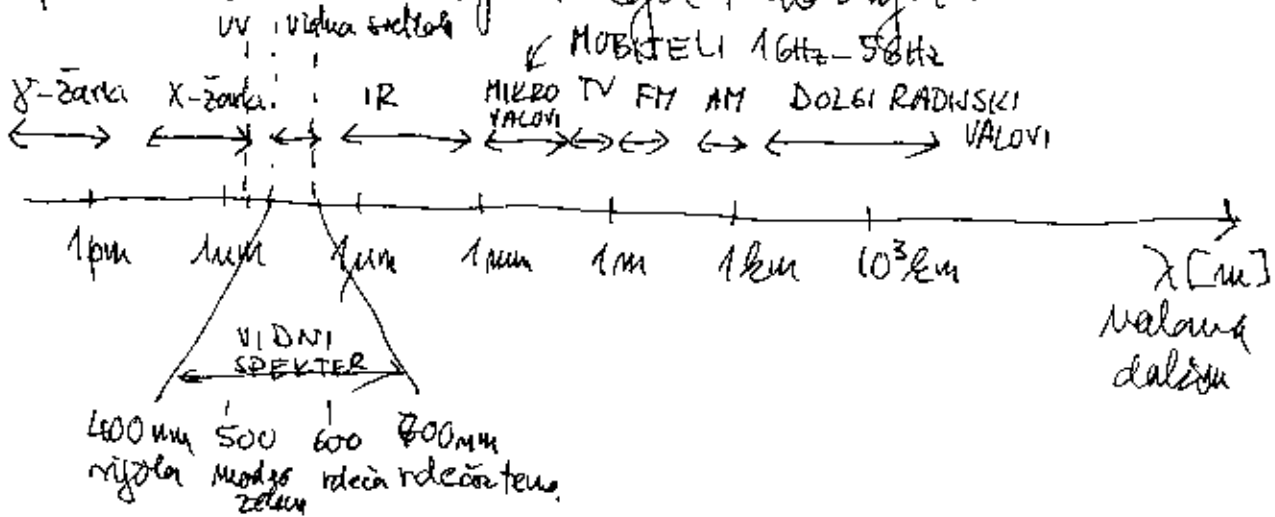 UV vidna svetloba
MOBITELI 1GHz-5GHz
γ-žarki X-žarki IR MIKRO VALOVI TV FM AM DOLGI RADIJSKI VALOVI
1pm 1nm 1μm 1mm 1m 1km 10³km λ[m]
valovna
VIDNI
SPEKTER
400nm 500 600 nm
vijola modro rdeča
zelena